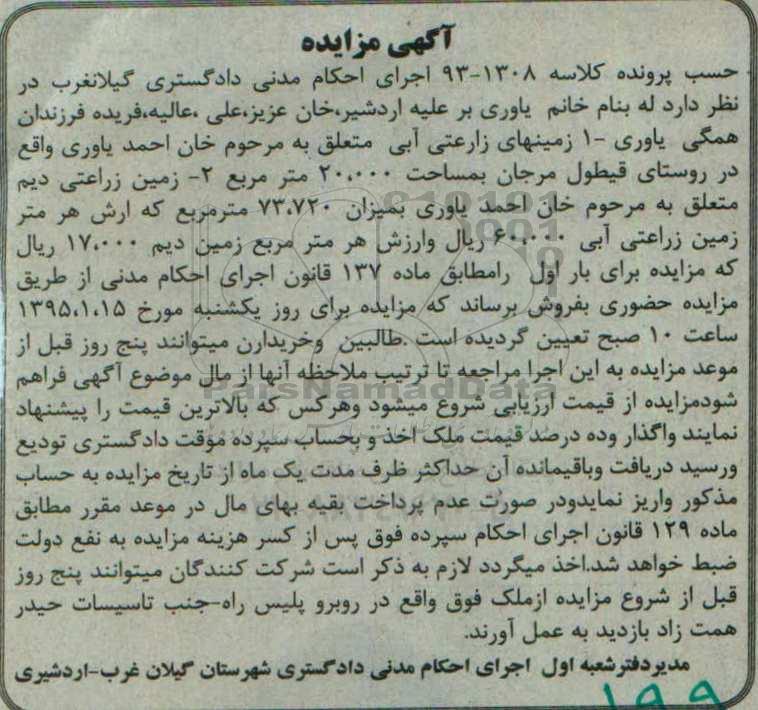 آگهی مزایده
حسب پرونده کلاسه ۱۳۰۸-۹۳ اجرای احکام مدنی دادگستری گیلانغرب در
نظر دارد له بنام خانم یاوری بر علیه اردشیر،خان عزیز،علی ،عالیه،فریده فرزندان
همگی یاوری -۱ زمینهای زارعتی آبی متعلق به مرحوم خان احمد یاوری واقع
در روستای قیطول مرجان بمساحت ۲۰،۰۰۰ متر مربع ۲- زمین زراعتی دیم
متعلق به مرحوم خان احمد یاوری بمیزان ۷۳،۷۲۰ مترمربع که ارش هر متر
زمین زراعتی آبی ۶۰،۰۰۰ ریال وارزش هر متر مربع زمین دیم ۱۷،۰۰۰ ریال
که مزایده برای بار اول رامطابق ماده ۱۳۷ قانون اجرای احکام مدنی از طریق
مزایده حضوری بفروش برساند که مزایده برای روز یکشنبه مورخ ۱۳۹۵،۱،۱۵
ساعت ۱۰ صبح تعیین گردیده است .طالبین وخریدارن میتوانند پنج روز قبل از
موعد مزایده به این اجرا مراجعه تا ترتیب ملاحظه آنها از مال موضوع آگهی فراهم
شودمزایده از قیمت ارزیابی شروع میشود وهرکس که بالاترین قیمت را پیشنهاد
نمایند واگذار وده درصد قیمت ملک اخذ و بحساب سپرده موقت دادگستری تودیع
ورسید دریافت وباقیمانده آن حداکثر ظرف مدت یک ماه از تاریخ مزایده به حساب
مذکور واریز نمایدودر صورت عدم پرداخت بقیه بهای مال در موعد مقرر مطابق
ماده ۱۲۹ قانون اجرای احکام سپرده فوق پس از کسر هزینه مزایده به نفع دولت
ضبط خواهد شد.اخذ میگردد لازم به ذکر است شرکت کنندگان میتوانند پنج روز
قبل از شروع مزایده ازملک فوق واقع در روبرو پلیس راه-جنب تاسیسات حیدر
همت زاد بازدید به عمل آورند.
مدیردفترشعبه اول اجرای احکام مدنی دادگستری شهرستان گیلان غرب-اردشیری
۱۹۹
ParsNamadData